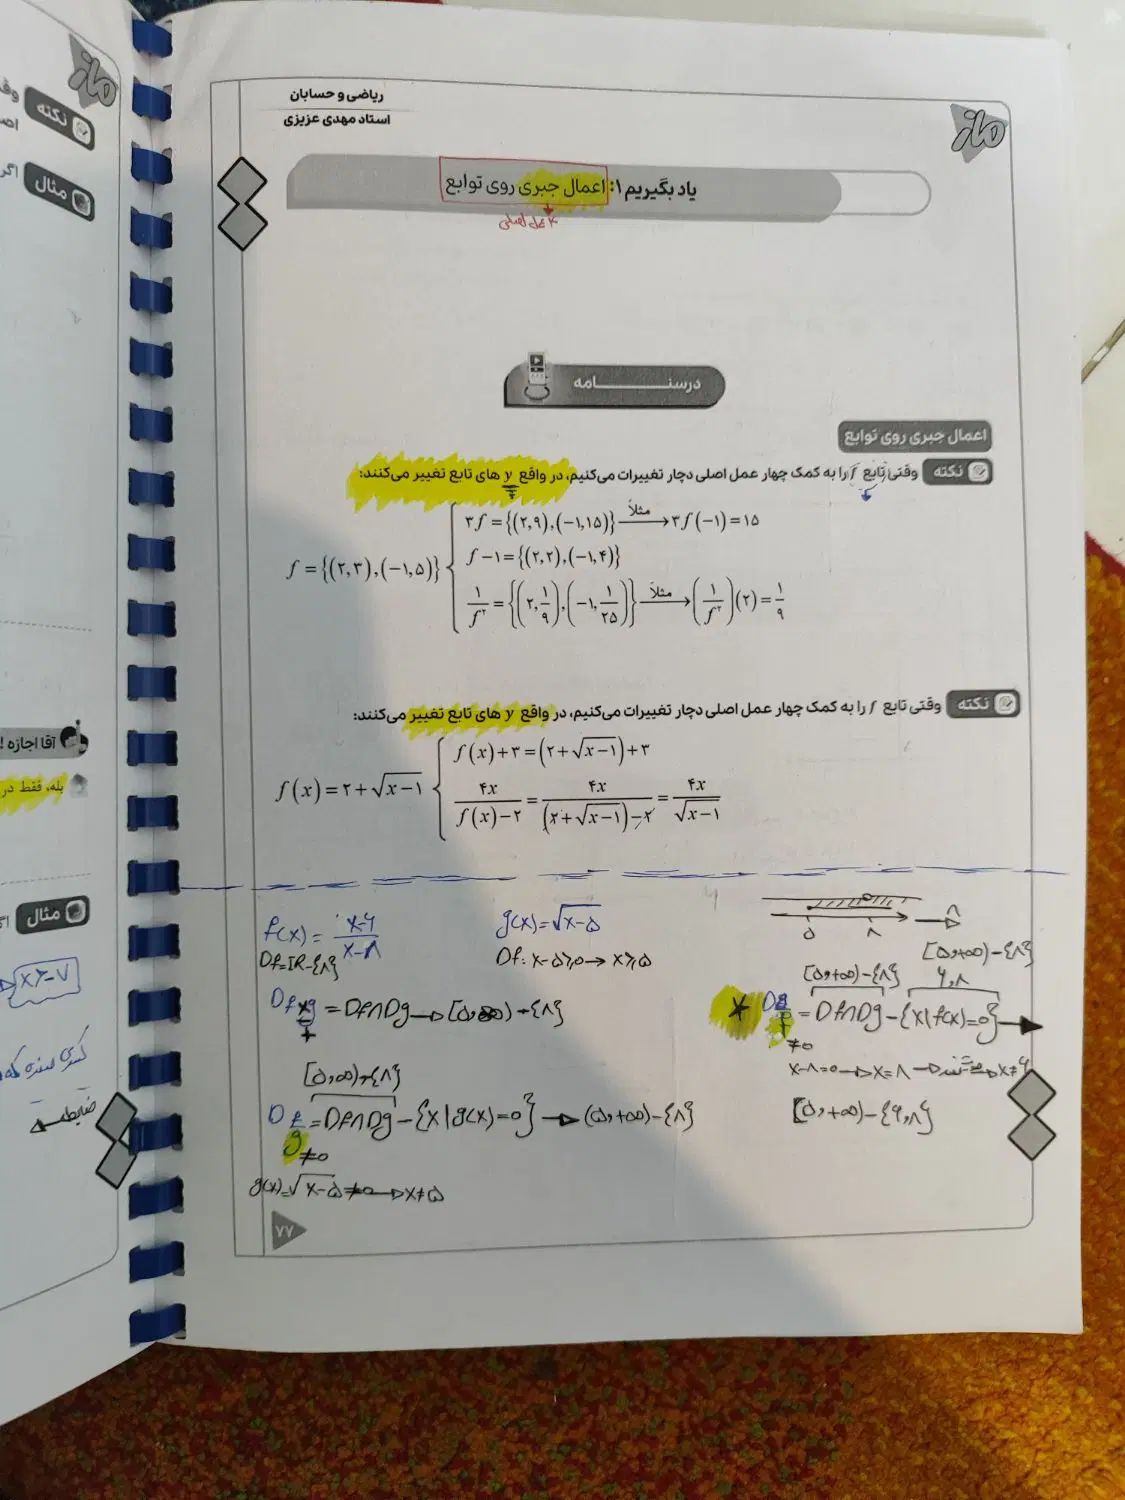 ریاضی و حسابان
استاد مهدی عزیزی
ماز
یاد بگیریم ۱: اعمال جبری روی توابع
۴ عمل اصلی
درسنامه
اعمال جبری روی توابع
نکته وقتی تابع f را به کمک چهار عمل اصلی دچار تغییرات می‌کنیم، در واقع y های تابع تغییر می‌کنند:
f = {(۲,۳),(-۱,۵)}
۳f = {(۲,۹),(-۱,۱۵)} مثلاً → ۳f(-۱) = ۱۵
f - ۱ = {(۲,۲),(-۱,۴)}
۱/f² = {(۲, ۱/۹),(-۱, ۱/۲۵)} مثلاً → (۱/f²)(۲) = ۱/۹
نکته وقتی تابع f را به کمک چهار عمل اصلی دچار تغییرات می‌کنیم، در واقع y های تابع تغییر می‌کنند:
f(x) = ۲ + √(x-۱)
f(x) + ۳ = (۲ + √(x-۱)) + ۳
۴x/(f(x)-۲) = ۴x/((۲+√(x-۱))-۲) = ۴x/√(x-۱)
f(x) = (x-۶)/(x-۸)
g(x) = √(x-۵)
Df = IR-{۸}
Df: x-۵≥۰ → x≥۵
۵ ۸
[۵,+∞)-{۸}
D f×g = Df∩Dg → [۵,∞) - {۸}
[۵,+∞)-{۸} ۶,۸
D g/f = Df∩Dg - {x|f(x)=۰} →
≠۰
x-۸=۰ → x=۸ → x≠۶
[۵,+∞)-{۶,۸}
[۵,∞)-{۸}
D f/g = Df∩Dg - {x|g(x)=۰} → (۵,+∞)-{۸}
≠۰
g(x)=√(x-۵)≠۰ → x≠۵
۷۷
ماز
نکته
مثال اگر
آقا اجازه !
بله، فقط در
مثال
x≥-۷
ضابطه